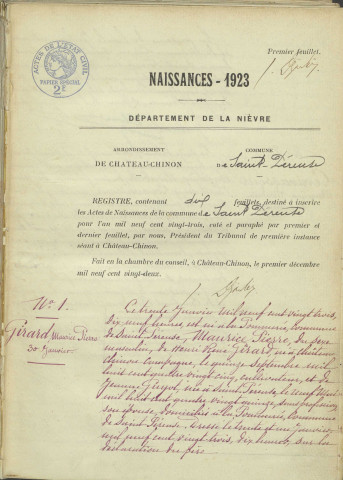 Premier feuillet.
ACTES DE L'ÉTAT CIVIL
PAPIER SPÉCIAL
2F
NAISSANCES - 1923
DÉPARTEMENT DE LA NIÈVRE
ARRONDISSEMENT
DE CHATEAU-CHINON
COMMUNE
de Saint-Péreuse
REGISTRE, contenant dix feuillets, destiné à inscrire
les Actes de Naissances de la commune de Saint Péreuse
pour l'an mil neuf cent vingt-trois, coté et paraphé par premier et
dernier feuillet, par nous, Président du Tribunal de première instance
séant à Château-Chinon.
Fait en la chambre du conseil, à Château-Chinon, le premier décembre
mil neuf cent vingt-deux.
No 1.
Girard Maurice Pierre
30 Janvier
Le trente Janvier mil neuf cent vingt trois,
dix neuf heures, est né à commune
de Saint Péreuse, Maurice Pierre, du sexe
masculin, de Girard, né à Château
Chinon campagne, le quinze Septembre mil
huit cent quatre vingt cinq, cultivateur, et de
Jeanne née à Saint Péreuse, le neuf
mil huit cent quatre vingt quinze, sans profession,
son épouse, domiciliés à commune
de Saint Péreuse. Dressé le trente et un Janvier
mil neuf cent vingt trois, dix heures, sur la
déclaration du père